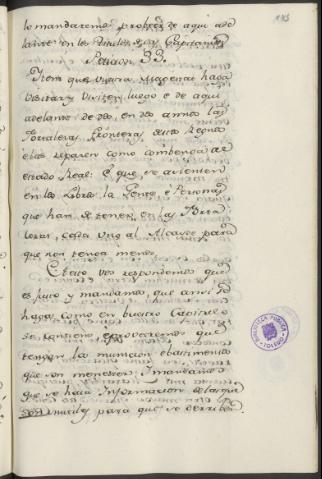 lo mandaremos proveer de aqui ade
lante en los Titulos de las Capitanias
Peticion 33.
Item que vuestra Magestad haga
visitar y visiten luego e de aqui
adelante de dos, en dos annos las
Fortalezas frontera destos Reynos
e las reparen como combenga al
estado Real: E que se asienten
en los Libros la Gente, e Personas
que han de tener, en las Forta
lezas, cada uno al Alcayde para
que non tenga menos.
Esto vos respondemos que
es justo y mandamos, que ansi se
haga como en vuestro Capitulo
se contiene e proveeremos que
tengan la municion e bastimentos
que son menester: I mandamos
que se haia Informacion de las que
son inutiles para que se derriben.
BIBLIOTECA PUBLICA
TOLEDO